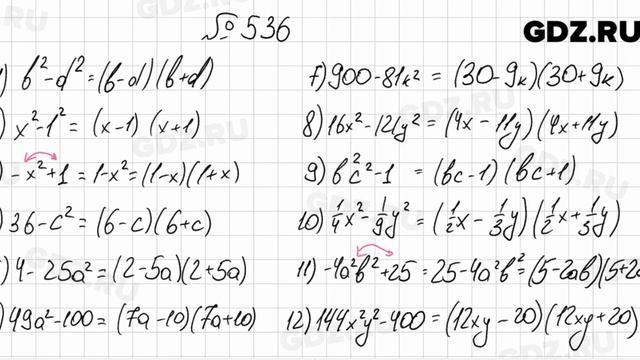 № 536
GDZ.RU
) b²-d²=(b-d)(b+d)
) x²-1²= (x-1) (x+1)
) -x²+1=1-x²=(1-x)(1+x)
) 36-c²=(6-c)(6+c)
) 4-25a²=(2-5a)(2+5a)
) 49a²-100=(7a-10)(7a+10)
7) 900-81k² = (30-9k)(30+9k)
8) 16x²-121y²=(4x-11y)(4x+11y)
9) b²c²-1 =(bc-1)(bc+1)
10) 1/4x²-1/9y²=(1/2x-1/3y)(1/2x+1/3y)
11) -4a²b²+25=25-4a²b²=(5-2ab)(5+2a
12) 144x²y²-400=(12xy-20)(12xy+20)